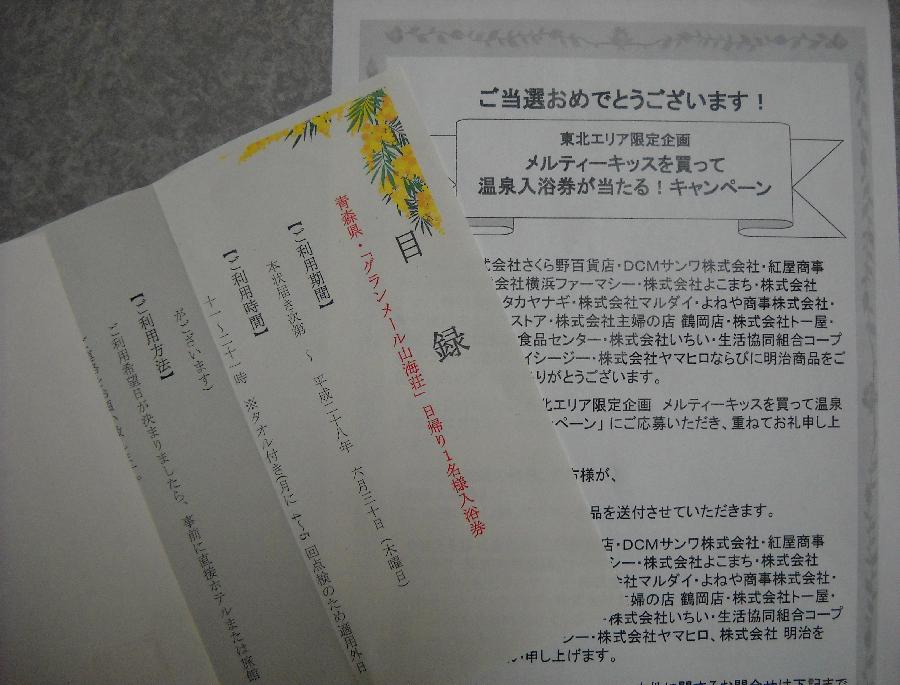 ご当選おめでとうございます！
東北エリア限定企画
メルティーキッスを買って
温泉入浴券が当たる！キャンペーン
式会社さくら野百貨店・DCMサンワ株式会社・紅屋商事
会社横浜ファーマシー・株式会社よこまち・株式会社
タカヤナギ・株式会社マルダイ・よねや商事株式会社・
ストア・株式会社主婦の店 鶴岡店・株式会社トー屋・
食品センター・株式会社いちい・生活協同組合コープ
イシージー・株式会社ヤマヒロならびに明治商品をご
りがとうございます。
北エリア限定企画 メルティーキッスを買って温泉
ンペーン」にご応募いただき、重ねてお礼申し上
方様が、
品を送付させていただきます。
店・DCMサンワ株式会社・紅屋商事
シー・株式会社よこまち・株式会社
会社マルダイ・よねや商事株式会社・
主婦の店 鶴岡店・株式会社トー屋・
・株式会社いちい・生活協同組合コープ
シー・株式会社ヤマヒロ、株式会社 明治を
申し上げます。
目 録
青森県・「グランメール山海荘」日帰り1名様入浴券
【ご利用期間】
本状届き次第 ～ 平成二十八年 六月三十日（木曜日）
【ご利用時間】
十一～二十一時 ※タオル付き(月に 4～5 回点検のため適用外日
がございます)
【ご利用方法】
ご利用希望日が決まりましたら、事前に直接ホテルまたは旅館